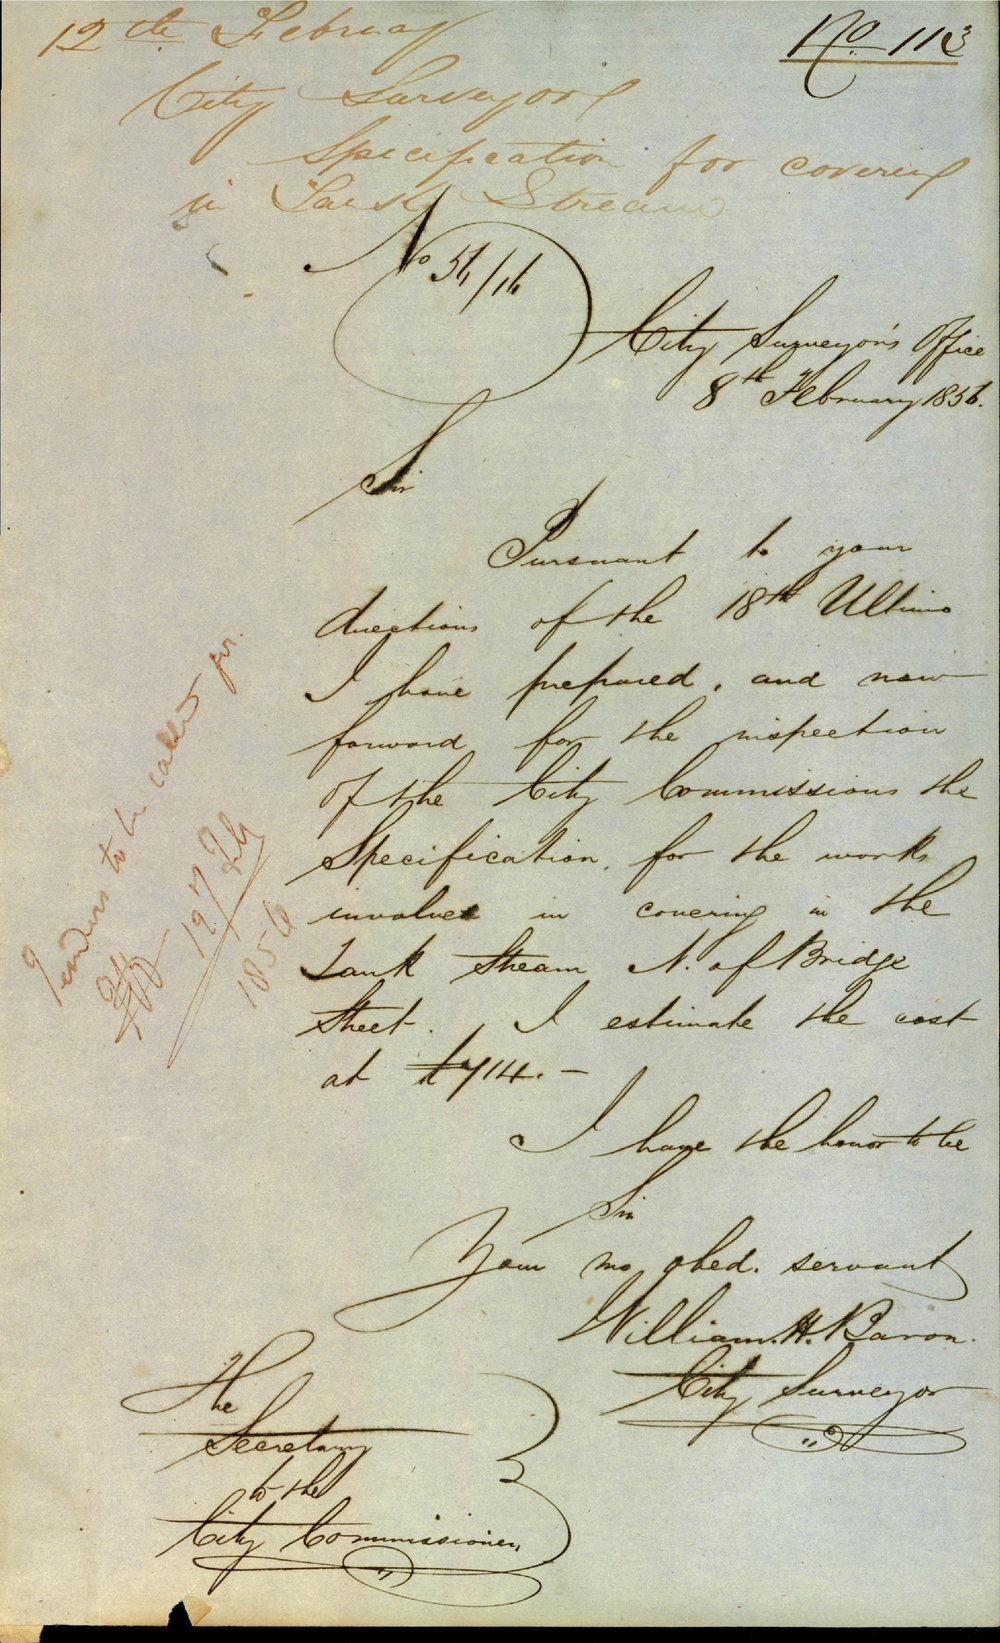 12th February
No 113
City Surveyor
Specification for covering
in Tank Stream
No 56/16
City Surveyor's Office
8th February 1856.
Sir
Pursuant to your
directions of the 18th Ultimo
I have prepared, and now
forward for the inspection
of the City Commissions the
Specification, for the works
involved in covering in the
Tank Stream N. of Bridge
Street. I estimate the cost
at £714.-
Tenders to be called for.
19/7 Feb
1856
I have the honor to be
Sir
Your mo obed. servant
William. H. Baron.
City Surveyor
The
Secretary
to the
City Commissioners